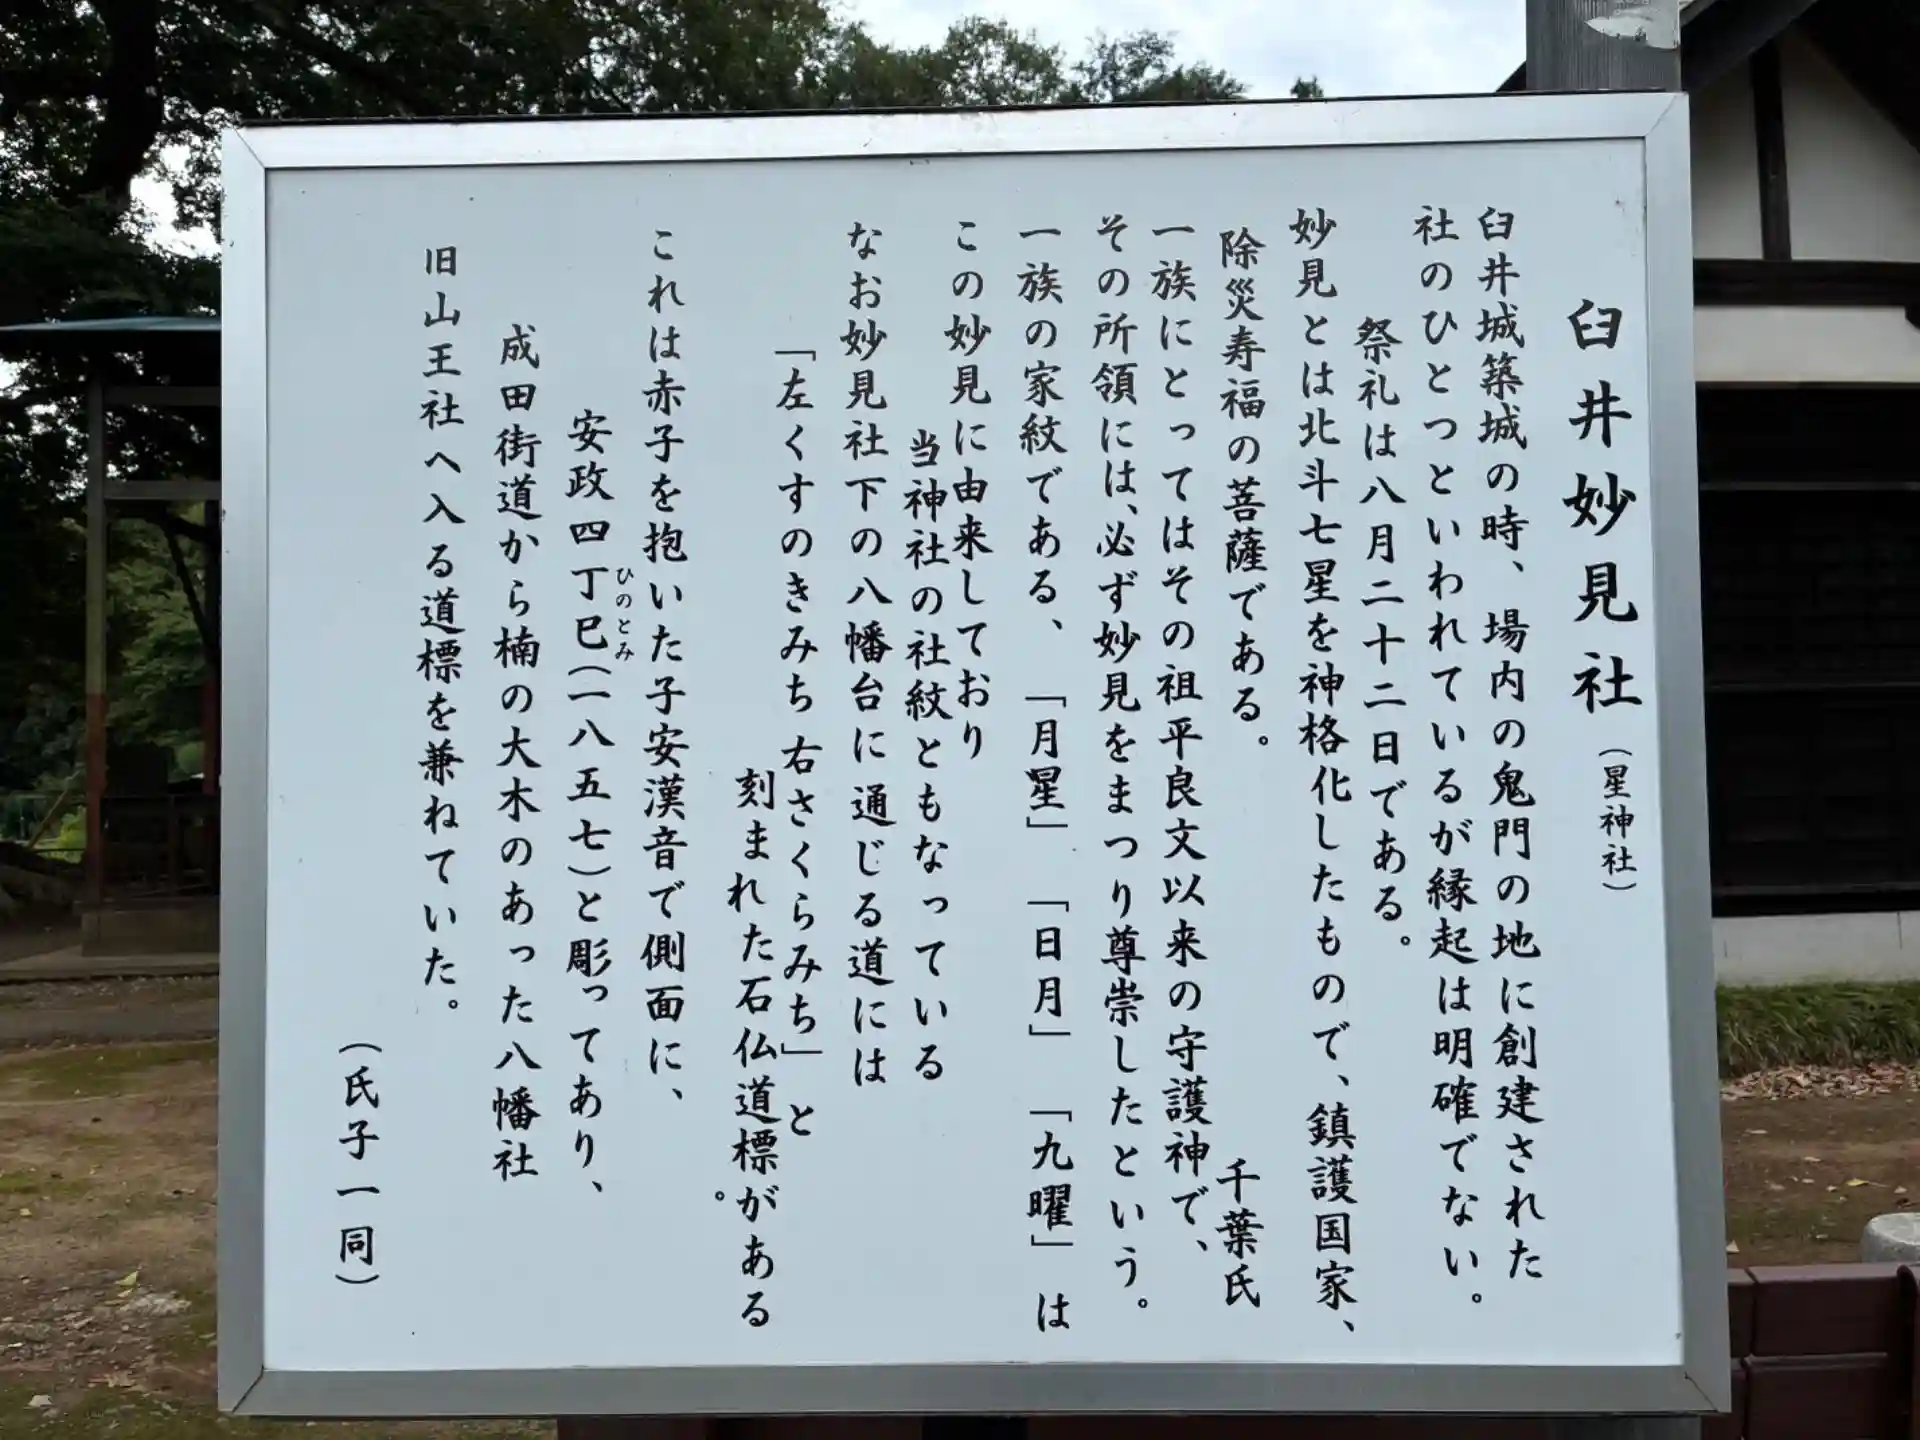 臼井妙見社（星神社）
臼井城築城の時、場内の鬼門の地に創建された
社のひとつといわれているが縁起は明確でない。
祭礼は八月二十二日である。
妙見とは北斗七星を神格化したもので、鎮護国家、
除災寿福の菩薩である。千葉氏
一族にとってはその祖平良文以来の守護神で、
その所領には、必ず妙見をまつり尊崇したという。
一族の家紋である、「月星」「日月」「九曜」は
この妙見に由来しており
当神社の社紋ともなっている
なお妙見社下の八幡台に通じる道には
「左くすのきみち右さくらみち」と
刻まれた石仏道標がある。
これは赤子を抱いた子安漢音で側面に、
安政四丁巳（一八五七）と彫ってあり、
ひのとみ
成田街道から楠の大木のあった八幡社
旧山王社へ入る道標を兼ねていた。
（氏子一同）